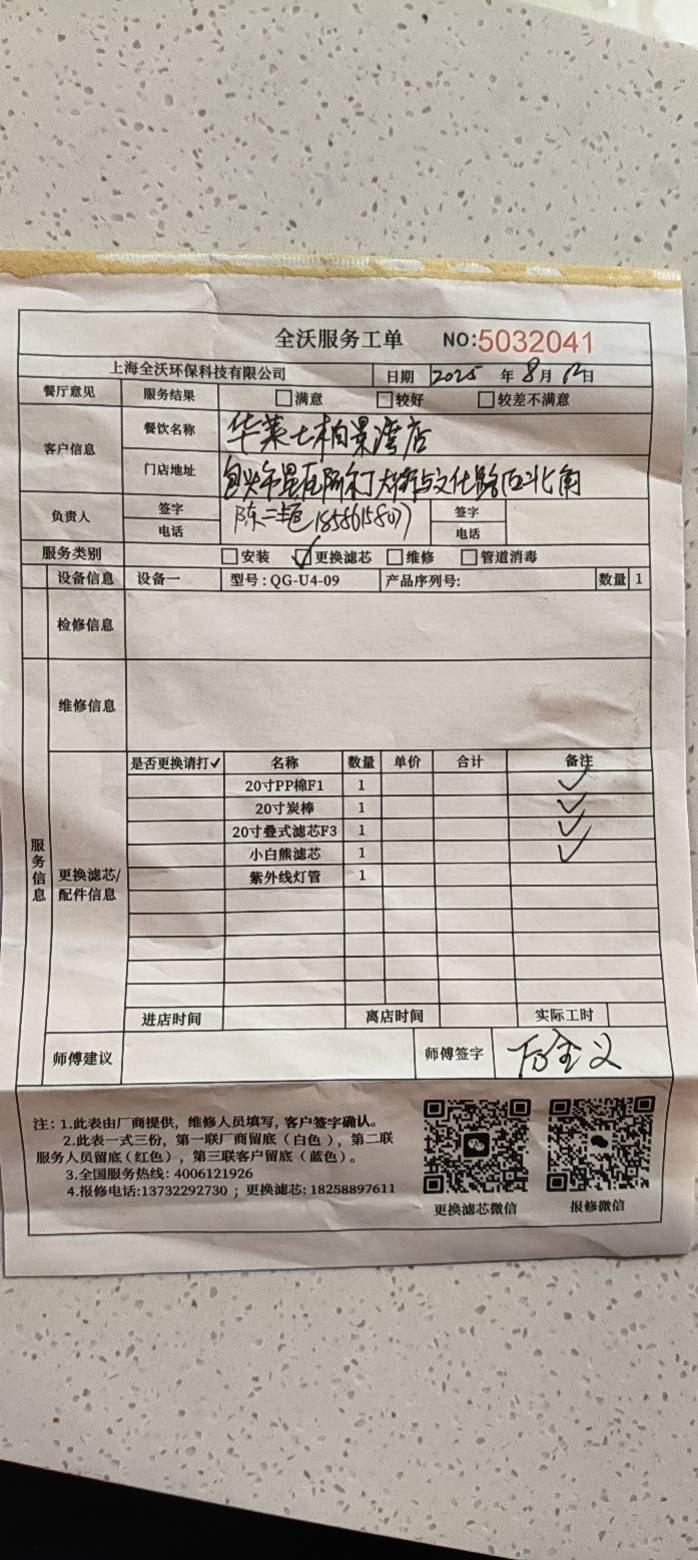 全沃服务工单 NO:5032041
上海全沃环保科技有限公司 日期 2025 年 8 月 12 日
餐厅意见 服务结果 满意 较好 较差不满意
客户信息 餐饮名称 华莱士柏景湾店
门店地址 大街与文化路西北角
负责人 签字 陈 签字
电话 电话
服务类别 安装 ✓更换滤芯 维修 管道消毒
设备信息 设备一 型号：QG-U4-09 产品序列号： 数量 1
检修信息
维修信息
服务信息
更换滤芯/配件信息
是否更换请打✓ 名称 数量 单价 合计 备注
20寸PP棉F1 1 ✓
20寸炭棒 1 ✓
20寸叠式滤芯F3 1 ✓
小白熊滤芯 1 ✓
紫外线灯管 1
进店时间 离店时间 实际工时
师傅建议 师傅签字
注：1.此表由厂商提供，维修人员填写，客户签字确认。
2.此表一式三份，第一联厂商留底（白色），第二联
服务人员留底（红色），第三联客户留底（蓝色）。
3.全国服务热线：4006121926
4.报修电话:13732292730；更换滤芯：18258897611
更换滤芯微信 报修微信